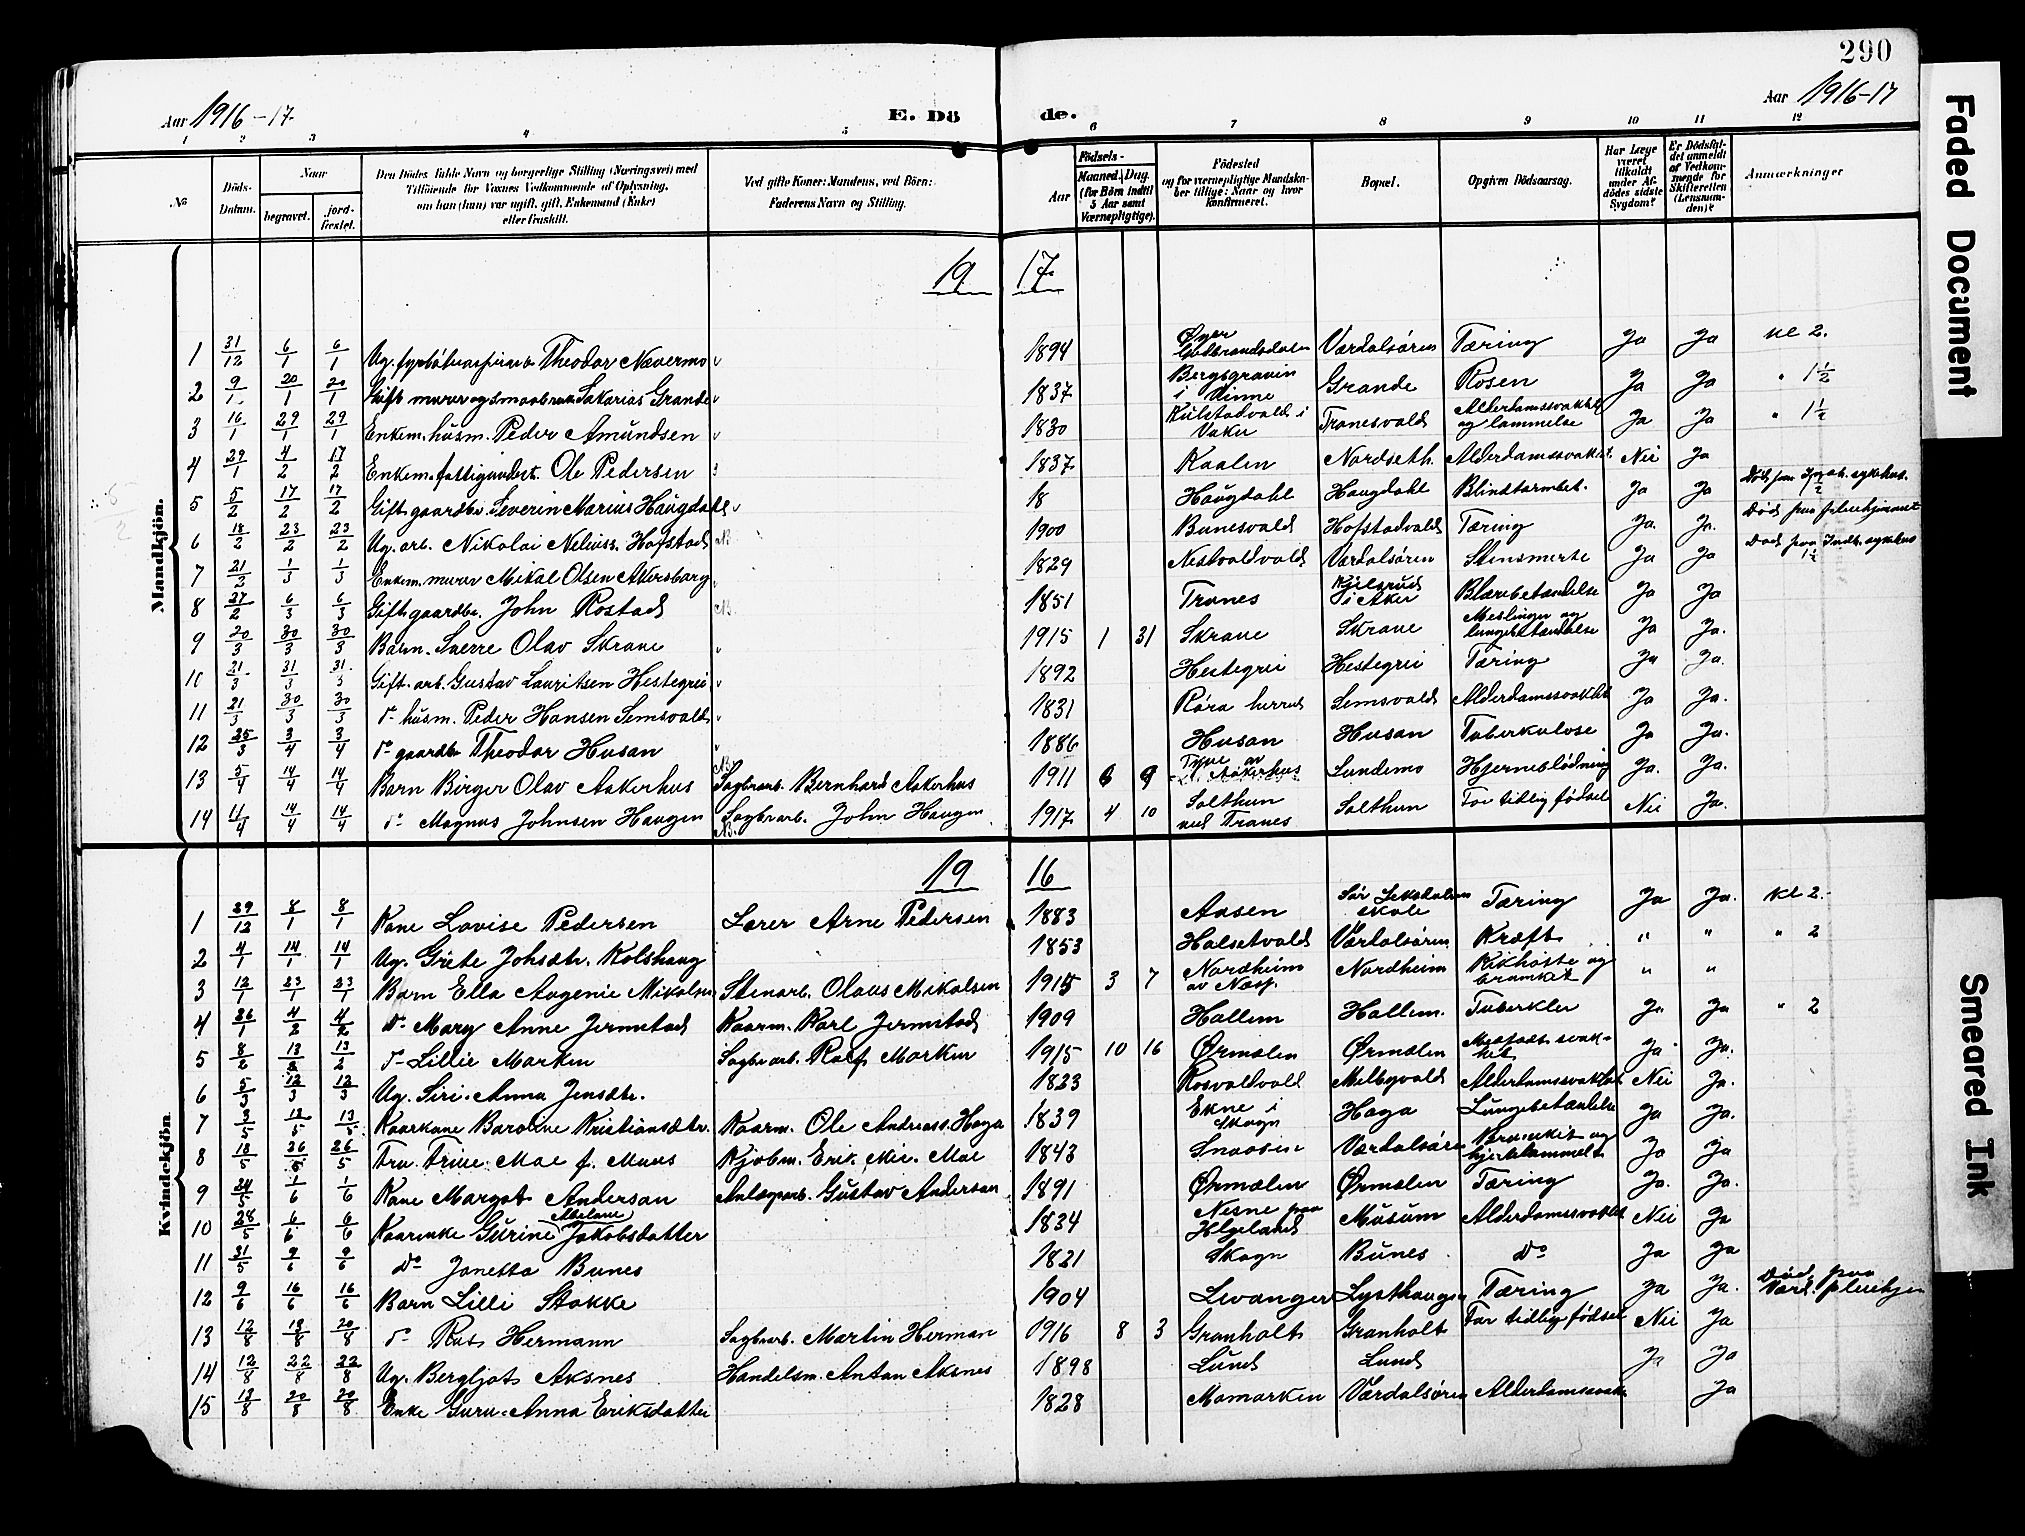 290
Aar 1916-17.
E. Dö
de.
Aar 1916-17
1 2 3 4 5 6 7 8 9 10 11 12
No
Döds-Datum.
Naar
begravet.
jord-fæstet.
Den Dödes fulde Navn og borgerlige Stilling (Næringsvei) med
Tilföiende for Voxnes Vedkommende af Oplysning,
om han (hun) var ugift, gift, Enkemand (Enke)
eller fraskilt.
Ved gifte Koner: Mandens, ved Börn:
Faderens Navn og Stilling.
Födsels-
Aar
Maaned. Dag.
(for Börn indtil
5 Aar samt
Værnepligtige).
Födested
og for værnepligtige Mandska-
ber tillige: Naar og hvor
konfirmeret.
Bopæl.
Opgiven Dödsaarsag.
Har Læge
været
tilkaldt
under Af-
dödes sidste
Sygdom?
Er Dödsfal-
det anmeldt
af Vedkom-
mende for
Skifteretten
(Lensman-
den)?
Anmærkninger
Mandkjön.
19 17
1 31/12 6/1 6/1 Ug. Theodor Nævermo 1894 Øyer Gudbrandsdalen Værdalsøren Tæring Ja Ja kl 2.
2 9/1 20/1 20/1 Gift murer og smaabruk Sakarias Grande 1837 Bergsgravin i Vinne Grande Rosen Ja Ja " 1 1/2
3 16/1 29/1 29/1 Enkem. husm. Peder Amundsen 1830 Kulstadvald i Vuku Tranesvald Alderdomssvakhet og lammelse Ja Ja " 1 1/2
4 29/1 4/2 17/2 Enkem. fattigunderst. Ole Pedersen 1837 Kaalen Nordseth. Alderdomssvakhet. Nei Ja
5 5/2 17/2 17/2 Gift gaardbr. Severin Marius Haugdahl 18 Haugdahl Haugdahl Blindtarmbet. Ja Ja Död paa sykehus.
6 18/2 23/2 23/2 Ug. arb. Nikolai Neliuss. Hofstad 1900 Bunesvald Hofstadvald Tæring Ja. Ja. Död paa pleiehjemmet
7 21/2 1/3 1/3 Enkem. murer Mikal Olsen Akersborg 1829 Nestvoldvald Værdalsøren Stensmerte Ja Ja Död paa Indh. sykehus
8 27/2 6/3 6/3 Gift gaardbr. John Rostad 1851 Tranes Kjelsrud i Aker Blærebetændelse Ja Ja
9 20/3 30/3 30/3 Barn. Sverre Olav Skrove 1915 1 31 Skrove Skrove Meslinger og lungebetændelse Ja Ja.
10 21/3 31/3 31/3 Gift. arb. Gustav Lauritsen Hestegrei 1892 Hestegrei Hestegrei Tæring Ja Ja.
11 21/3 30/3 30/3 do husm. Peder Hansen Semsvald 1831 Røra herred Semsvald Alderdomssvakhet Ja Ja.
12 25/3 3/4 3/4 do gaardbr. Theodor Husan 1886 Husan Husan Tuberkulose Ja Ja.
13 5/4 14/4 14/4 Barn Birger Olav Aakerhus Sagbr.arb. Bernhard Aakerhus 1911 6 9 Aakerhus Lundemo Hjerneblödning Ja. Ja.
14 11/4 14/4 14/4 do Magnus Johnsen Haugen Sagbr.arb. John Haugen 1917 4 10 Solthun ved Tranes Solthun For tidlig fødsel Nei Ja.
Kvindekjön.
19 16
1 29/12 8/1 8/1 Kone Lovise Pedersen Lærer Arne Pedersen 1883 Aasen Sør Leksdalen skole Tæring Ja Ja. kl 2.
2 4/1 14/1 14/1 Ug. Grete Johsdtr. Kolshaug 1853 Halsetvald Værdalsøren Kræft " " " 2
3 12/1 23/1 23/1 Barn Ella Augenie Mikalsen Stenarb. Olaus Mikalsen 1915 3 7 Nordheim av Næsp. Nordheim Kikhoste og bronkit " "
4 26/1 4/2 4/2 do Mary Anne Jermstad Kaarm. Karl Jermstad 1909 Hallem Hallem. Tuberkler Ja Ja " 2
5 8/2 13/2 13/2 do Lillie Marken Sagbr.arb. Rolf Marken 1915 10 16 Ørmelen Ørmelen Medfødt svak-het Ja Ja.
6 5/3 12/3 12/3 Ug. Siri Anna Jensdtr. 1823 Rosvoldvald Melbyvald Alderdomssvakhet Nei Ja.
7 3/5 13/5 13/5 Kaarkone Baroline Kristiansdtr. Kaarm. Ole Andreass. Haga 1839 Ekne i Skogn Haga Lungebetændelse Ja Ja.
8 18/5 26/5 26/5 Fru Trine Moe f. Muus Kjøbm. Erik Nic. Moe 1843 Snaasen Værdalsøren Bronkit og hjertelammelse Ja Ja
9 24/5 1/6 1/6 Kone Margot Anderson Anlægsarb. Gustav Anderson 1891 Ørmelen Ørmelen Tæring Ja. Ja.
10 28/5 6/6 6/6 Kaarenke Gurine Jakobsdatter 1834 Nesne paa Helgeland Musum Alderdomssvakhet Nei Ja
11 31/5 9/6 9/6 do Janetta Bunes 1821 Skogn Bunes do Ja Ja
12 9/6 16/6 16/6 Barn Lilli Stokke 1904 Levanger Lysthaugen Tæring Ja Ja. Död paa Værd. pleiehjem
13 12/8 18/8 20/8 do Rut Hermann Sagbr.arb. Martin Herman 1916 8 3 Granholt Granholt For tidlig fødsel Nei Ja
14 12/8 22/8 22/8 Ug. Bergljot Aksnes Handelsm. Anton Aksnes 1898 Lund Lund Ja Ja
15 13/8 20/8 20/8 Enke Guru-Anna Eriksdatter 1828 Momarken Værdalsøren Alderdomssvak Ja
Faded Document
Smeared Ink